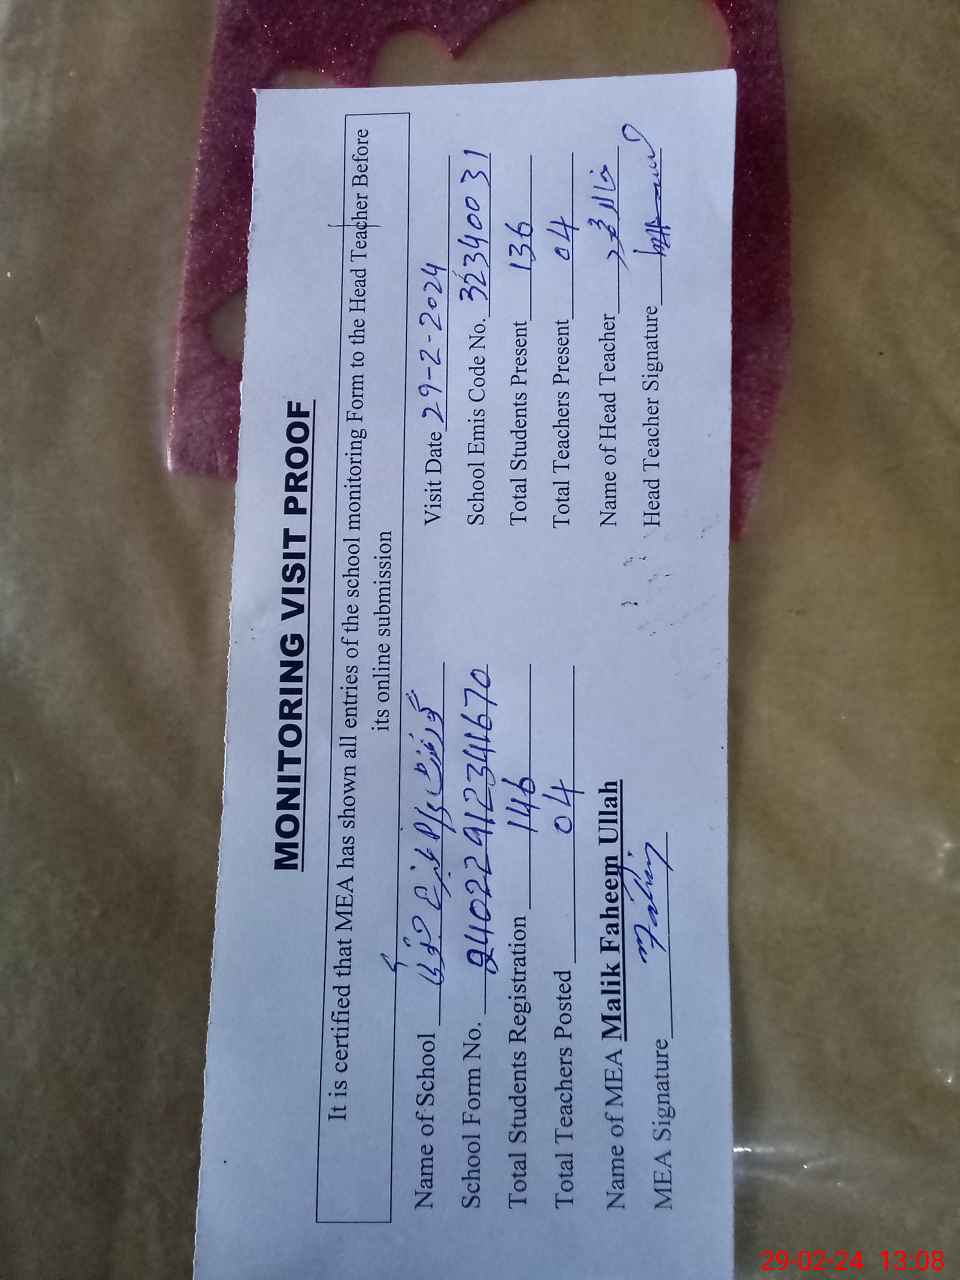 MONITORING VISIT PROOF
It is certified that MEA has shown all entries of the school monitoring Form to the Head Teacher Before
its online submission
Name of School
Visit Date 29-2-2024
School Form No. 24022912341670
School Emis Code No. 32340031
Total Students Registration 146
Total Students Present 136
Total Teachers Posted 04
Total Teachers Present 04
Name of MEA Malik Faheem Ullah
Name of Head Teacher
MEA Signature Fahim
Head Teacher Signature
29-02-24 13:08